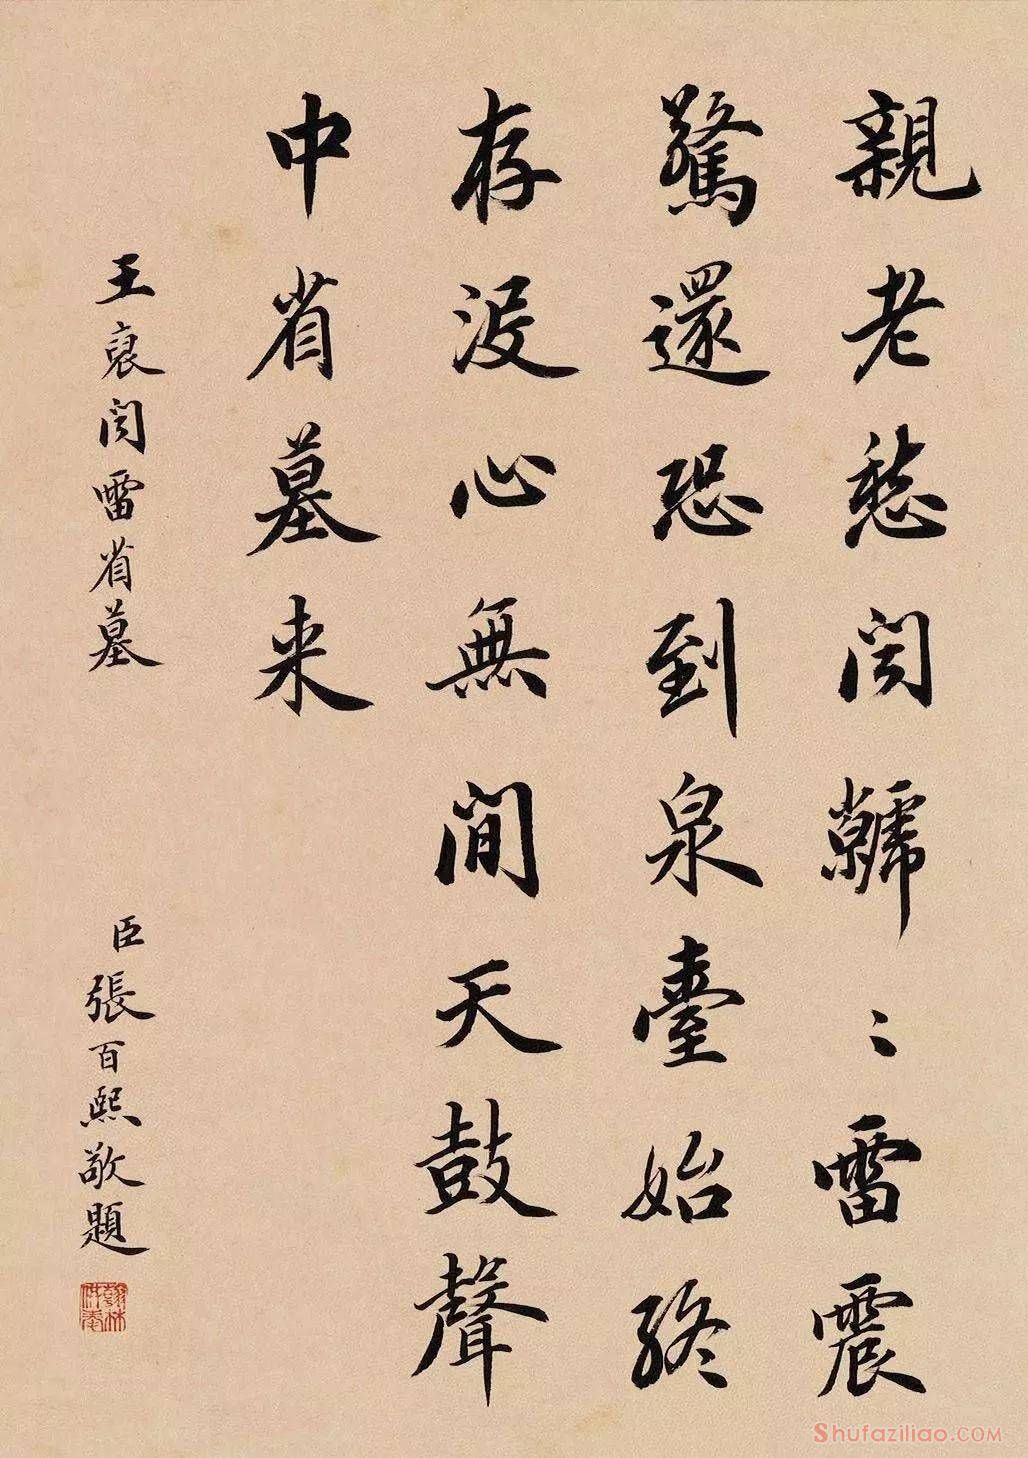 親老愁聞虩〻雷震
驚還恐到泉臺始終
存没心無間天鼓聲
中省墓来
王裒聞雷省墓
臣張百熙敬題
翰林供奉
Shufaziliao.COM